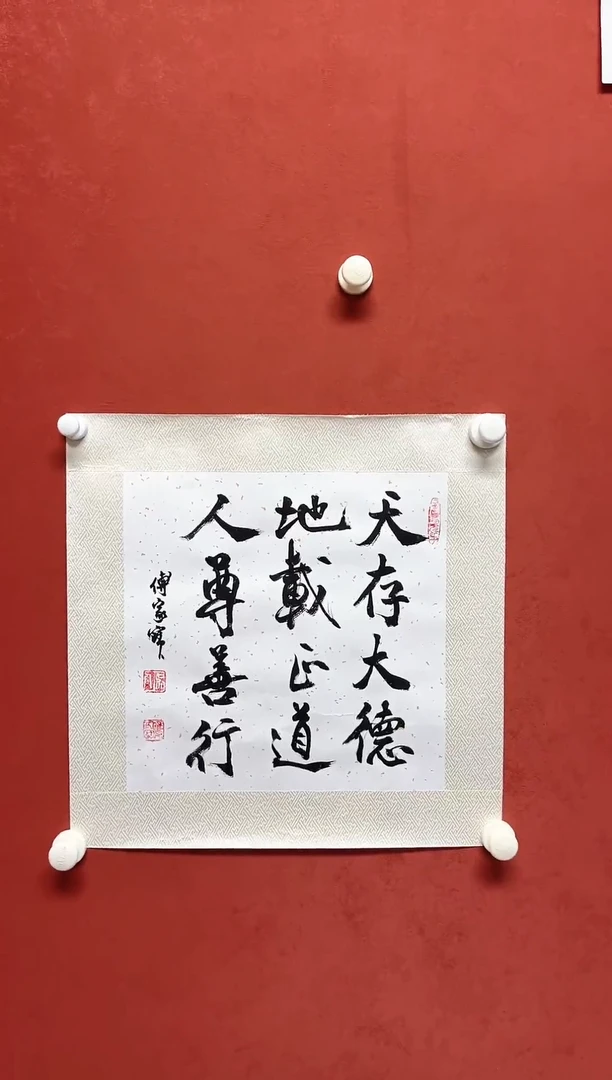 天存大德
地載正道
人尊善行
傅家寶